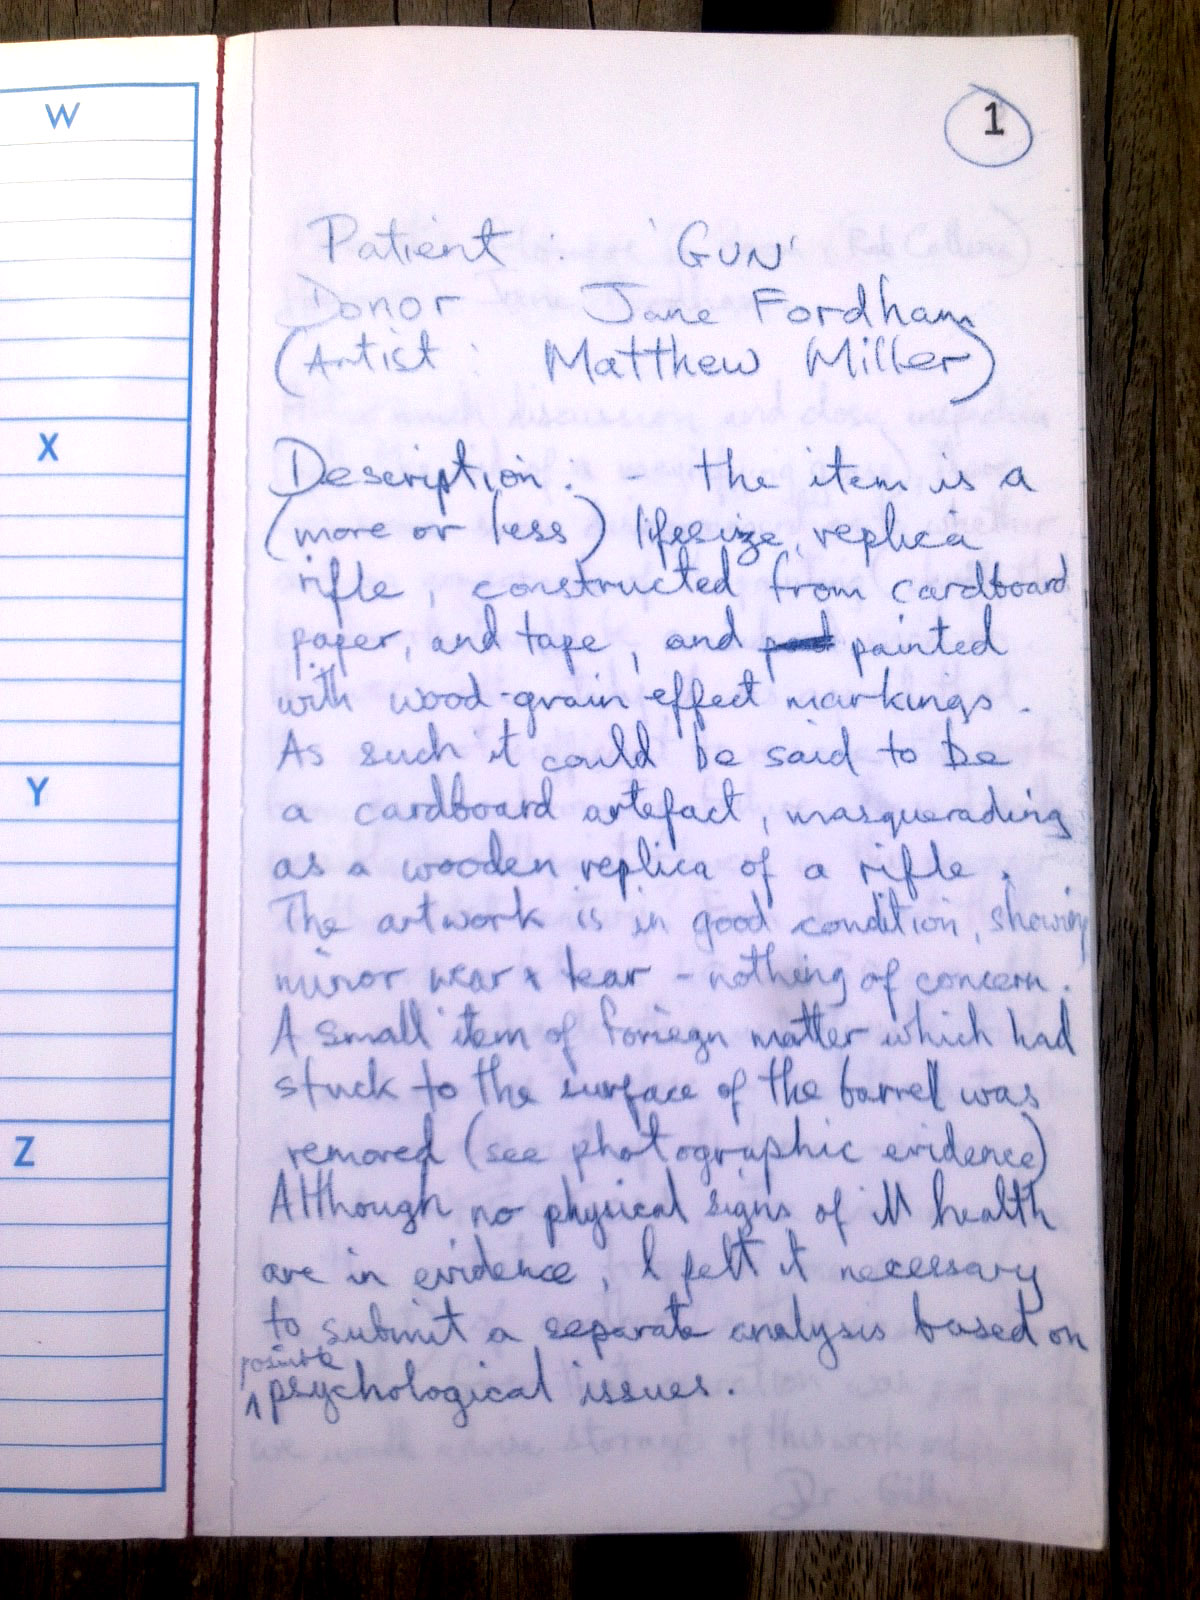 W
X
Y
Z
1
Patient : 'GUN'
Donor Jane Fordham
(Artist : Matthew Miller)
Description : - the item is a
(more or less) lifesize, replica
rifle, constructed from cardboard,
paper, and tape, and painted
with wood-grain effect markings.
As such it could be said to be
a cardboard artefact, masquerading
as a wooden replica of a rifle.
The artwork is in good condition, showing
minor wear & tear - nothing of concern.
A small item of foriegn matter which had
stuck to the surface of the barrel was
removed (see photographic evidence)
Although no physical signs of ill health
are in evidence, I felt it necessary
to submit a separate analysis based on
possible
psychological issues.